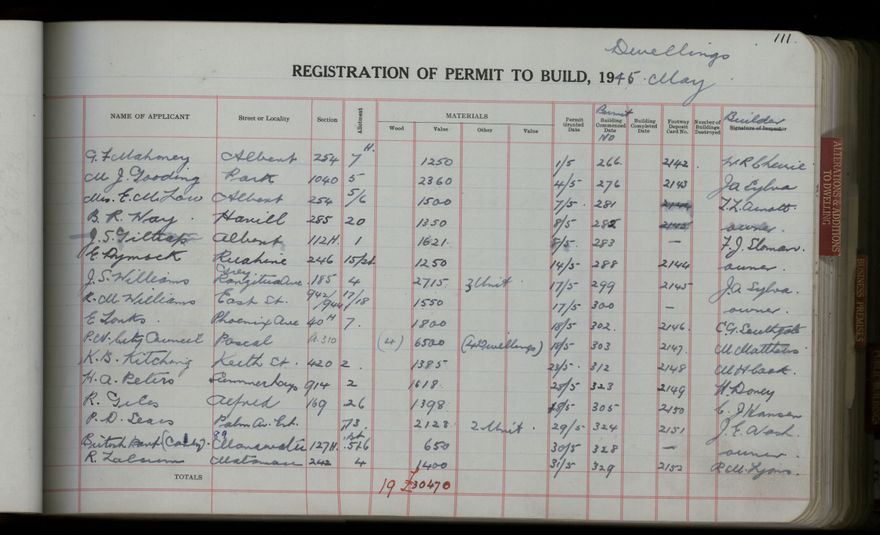 111.
Dwellings
REGISTRATION OF PERMIT TO BUILD, 1945. May
NAME OF APPLICANT Street or Locality Section Allotment MATERIALS Wood Value Other Value Permit Granted Date Permit Building Commenced Date No Building Completed Date Footway Deposit Card No. Number of Buildings Destroyed Builder Signature of Inspector
G. F. Mahoney Albert 254 7 H. 1250 1/5 266 2142
M J. Gooding Park 1040 5 2360 4/5 276 2143 J A Sylva
Mrs. E. M. Law Albert 254 5/6 1500 7/5 281 2144 Arnott
B. R. Hay Havill 285 20 1350 8/5 282 2145 owner
J. S. Gilltrap Albert 112H. 1 1621 8/5 283 — F. J. Sloman
E. Dymock Ruahine 246 1250 14/5 288 2144 owner
J. S. Williams Grey Rangitea Ave 185 4 2715 2 Unit 17/5 299 2145 J. A. Sylva
R. M. Williams East St. 942/944 17/18 1550 17/5 300 — owner
E Lonks Phoenix Ave 40 H 7. 1800 18/5 302. 2146
P.N. City Council Pascal A. 310 (4) 6500 (4 Dwellings) 18/5 303 2147 M Matthews
K. B. Kitching Keith St. 420 2 1385 23/5 312 2148
H. A. Peters Summerhays 914 2 1618 28/5 323 2149 H Doney
R. Giles Alfred 169 26 1398 28/5 305 2150 C. J Hansen
P. D. Sears Palm Av. Ext. 2128 2 Unit 29/5 324 2151 J. E. Nash
British 89 Manawatu 127H. 5+6 650 30/5 328 — owner
R. Matsman 242 4 1400 31/5 329 2152 R. M. Lyons
TOTALS 19 £30470
ALTERATIONS & ADDITIONS TO DWELLING.
BUSINESS PREMISES